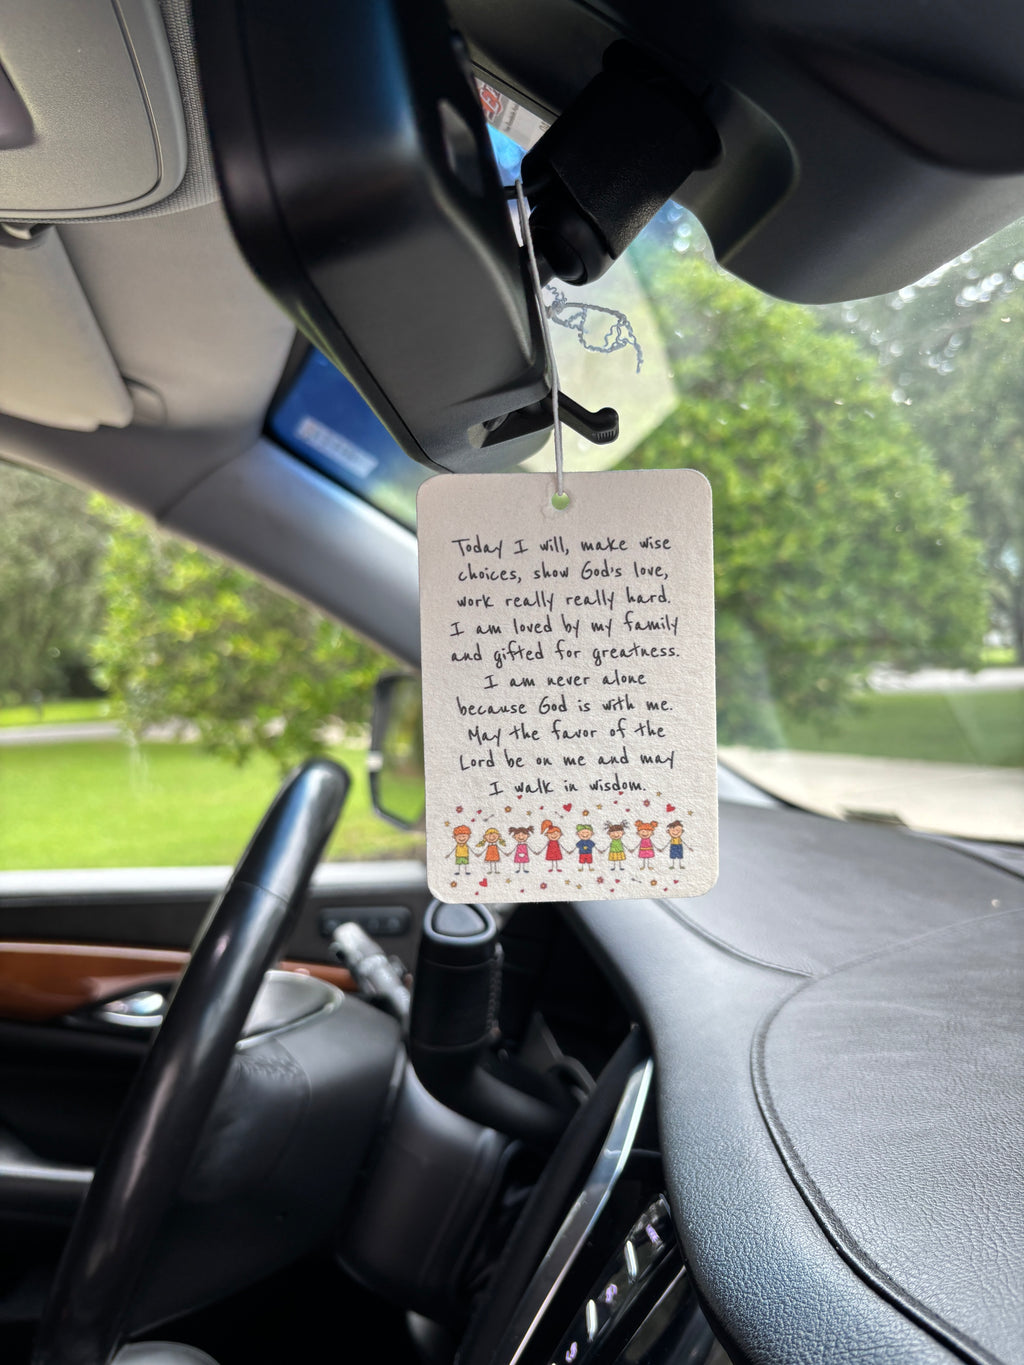 Today I will, make wise
choices, show God's love,
work really really hard.
I am loved by my family
and gifted for greatness.
I am never alone
because God is with me.
May the favor of the
Lord be on me and may
I walk in wisdom.